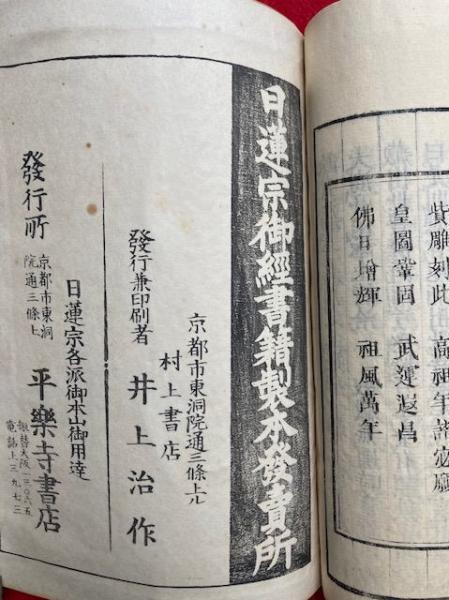 貲雕刻此 高祖年譜
皇圖鞏固 武運遐昌
佛日增輝 祖風萬年
日蓮宗御經書籍製本發賣所
京都市東洞院通三條上ル
村上書店
發行兼印刷者 井上治作
日蓮宗各派御本山御用達
發行所
京都市東洞
院通三條上
平樂寺書店
振替大阪一三〇八五
電話上三九七三